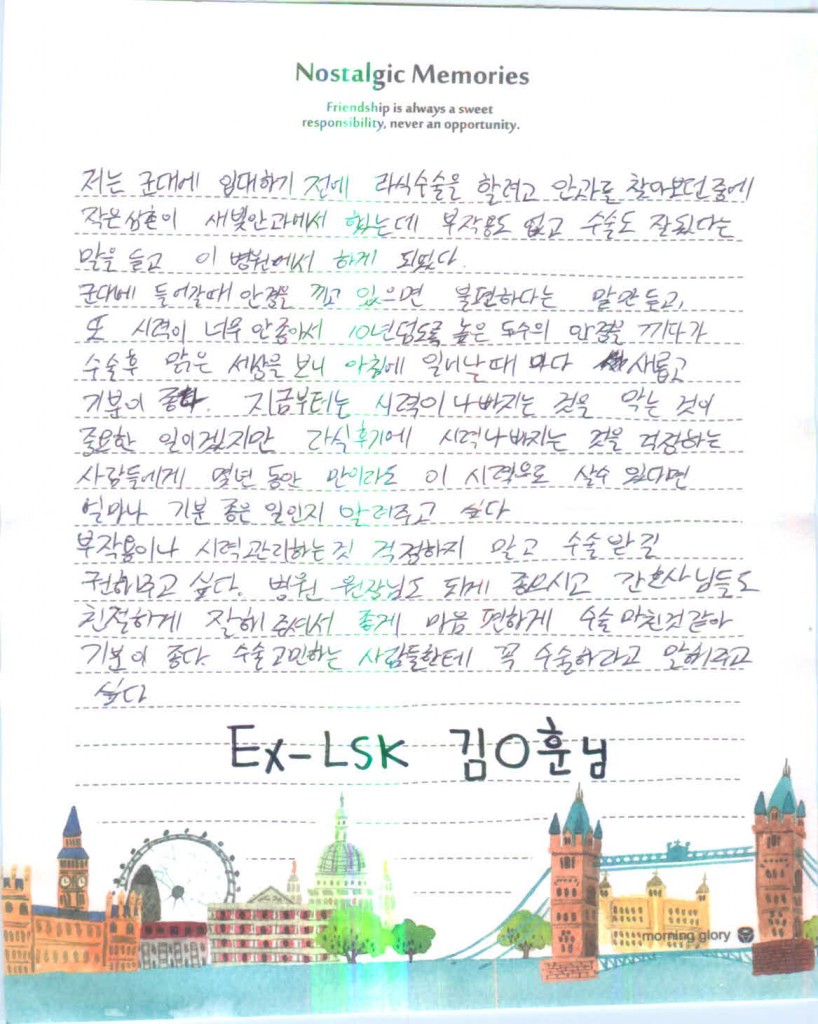 Nostalgic Memories
Friendship is always a sweet
responsibility, never an opportunity.
저는 군대에 입대하기 전에 라식수술을 할려고 안과를 찾아보던중에
작은삼촌이 새빛안과에서 했는데 부작용도 없고 수술도 잘된다는
말을 듣고 이 병원에서 하게 되었다.
군대에 들어갈때 안경을 끼고 있으면 불편하다는 말만 듣고,
또 시력이 너무 안좋아서 10년넘도록 높은 도수의 안경을 끼다가
수술후 맑은 세상을 보니 아침에 일어날때 마다 새롭고
기분이 좋다. 지금부터는 시력이 나빠지는 것을 막는 것이
중요한 일이겠지만 라식후기에 시력나빠지는 것을 걱정하는
사람들에게 몇년 동안 만이라도 이 시력으로 살수 있다면
얼마나 기분 좋은 일인지 알려주고 싶다
부작용이나 시력관리하는것 걱정하지 말고 수술받길
권해주고 싶다. 병원 원장님도 되게 좋으시고 간호사님들도
친절하게 잘해 주셔서 좋게 마음 편하게 수술 마친것같아
기분이 좋다. 수술고민하는 사람들한테 꼭 수술하라고 말해주고
싶다
Ex-LSK 김O훈님
morning glory